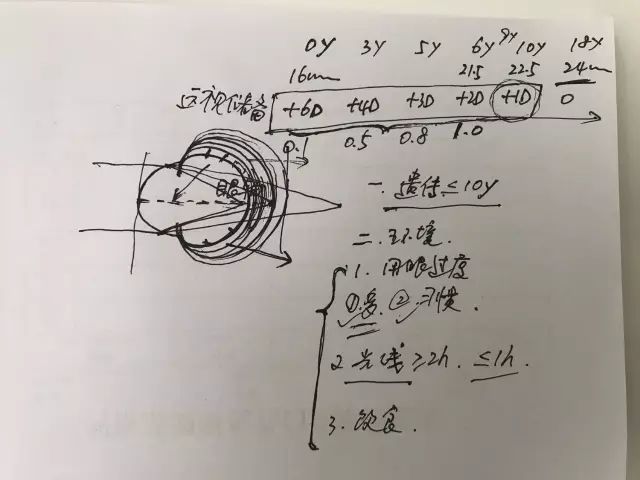 0Y 3Y 5Y 6Y 9Y 10Y 18Y
16mm 21.5 22.5 24mm
远视储备 +6D +4D +3D +2D +1D 0
0.1 0.5 0.8 1.0
眼
一. 遗传≤10y
二. 环境.
1. 用眼过度
①多. ②习惯.
2 光线 ≥2h. ≤1h.
3. 饮食.